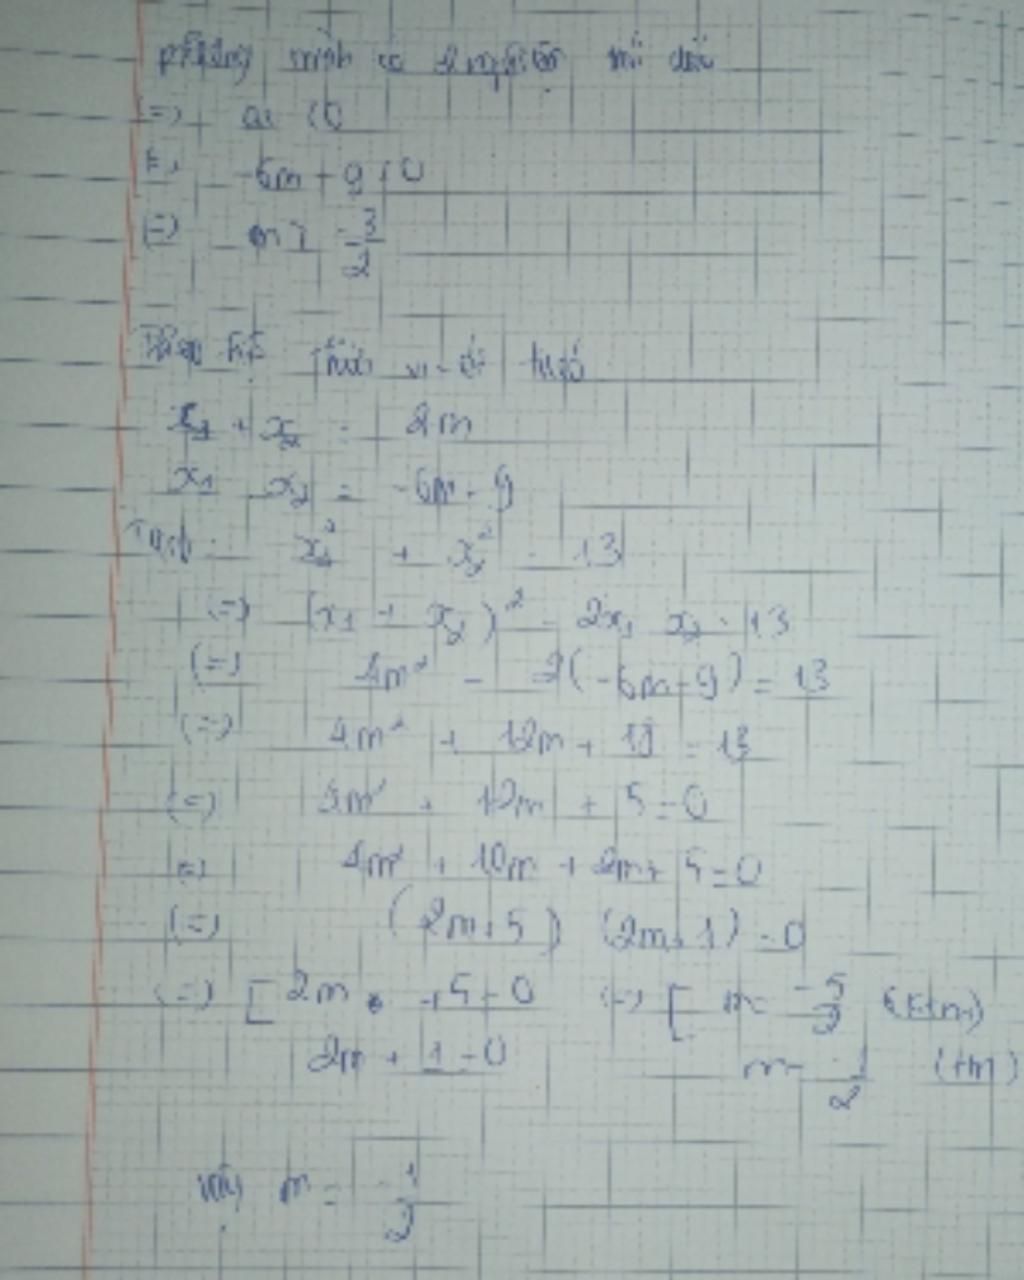 phương trình có 2 nghiệm trái dấu
(=) ac < 0
(=) -6m - 9 < 0
(=) m > -3/2
theo vi-ét
x₁ + x₂ = 2m
x₁ x₂ = -6m - 9
x₁² + x₂² = 13
(=) (x₁ + x₂)² - 2x₁ x₂ = 13
(=) 4m² - 2(-6m - 9) = 13
(=) 4m² + 12m + 18 = 13
(=) 4m² + 12m + 5 = 0
(=) 4m² + 10m + 2m + 5 = 0
(=) (2m + 5) (2m + 1) = 0
(=) [ 2m + 5 = 0 (=) [ m = -5/2 (ktm)
2m + 1 = 0 m = -1/2 (tm)
vậy m = -1/2